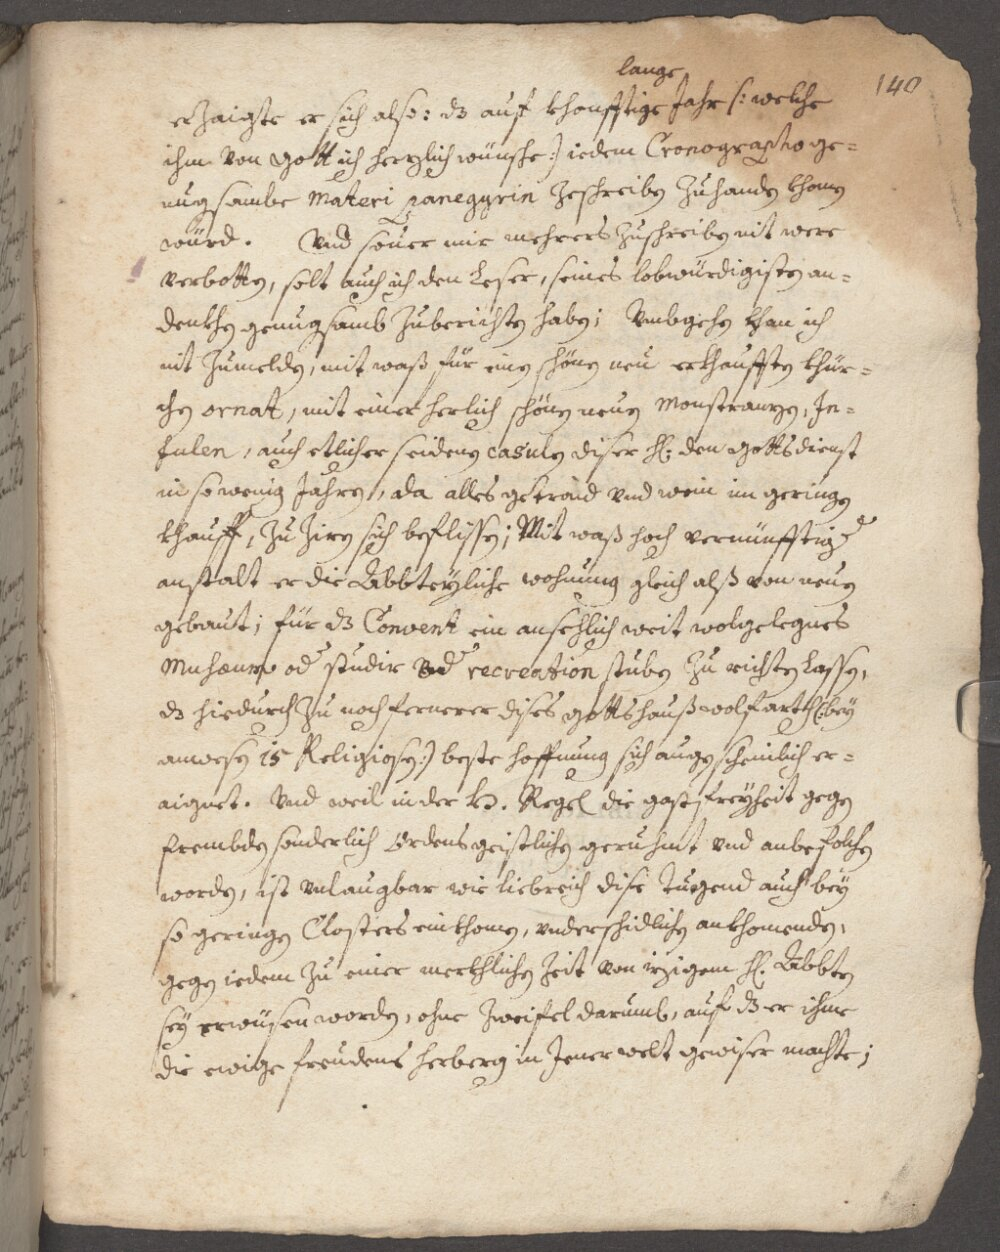 140
lange
erzaigte er sich also: dz auf khonfftige Jahr (: welche
ihm von Gott ich herzlich wünsche :) iedem Cronographo ge=
nugsambe Materi panegyrin zeschreiben zuhanden khomen
würd. Vnd souer mir mehrers zuschreiben nit were
verbotten, solt auch ich den Leser, seines lobwürdigisten an=
denkhen genugsamb zuberichten haben; Vmbgehen khan ich
nit zumelden, mit waß für einen schönen neu erkhaufften khür=
chen ornat, mit einer herlich schönen neuen Monstranzen, In=
fulen, auch etlicher seidenen casulen diser H: den Gottsdienst
in so wenig Jahren, da alles getraid vnd wein im geringen
khauff, zu ziren sich beflissen; Mit waß hoch vernünfftiger
anstalt er die Abbteyliche wohnung gleich alß von neuen
gebaut; für dz Convent ein ansehlich weit wolgelegnes
Musaeum oder studir vnd recreation stuben zu richten lassen,
dz hiedurch zu noch fernerer dises Gottshauß wolfarth (: bey
anwesen 15 Religiosen :) beste hoffnung sich augenscheinlich er=
aignet. Vnd weil in der H. Regel die gastfreyheit gegen
frembden sonderlich Ordens geistlichen gerühmt vnd anbefolchen
worden, ist vnlaugbar wie liebreich dise Tugend auch bey
so geringen Closters einkhomen, vnderschidlichen ankhomenden,
gegen iedem zu einer merkhlichen Zeit von izigem H. Abbten
sey erwüsen worden, ohne Zweifel darumb, auf dz er ihme
die ewige freudens herberg in Jener welt gewiser machte;